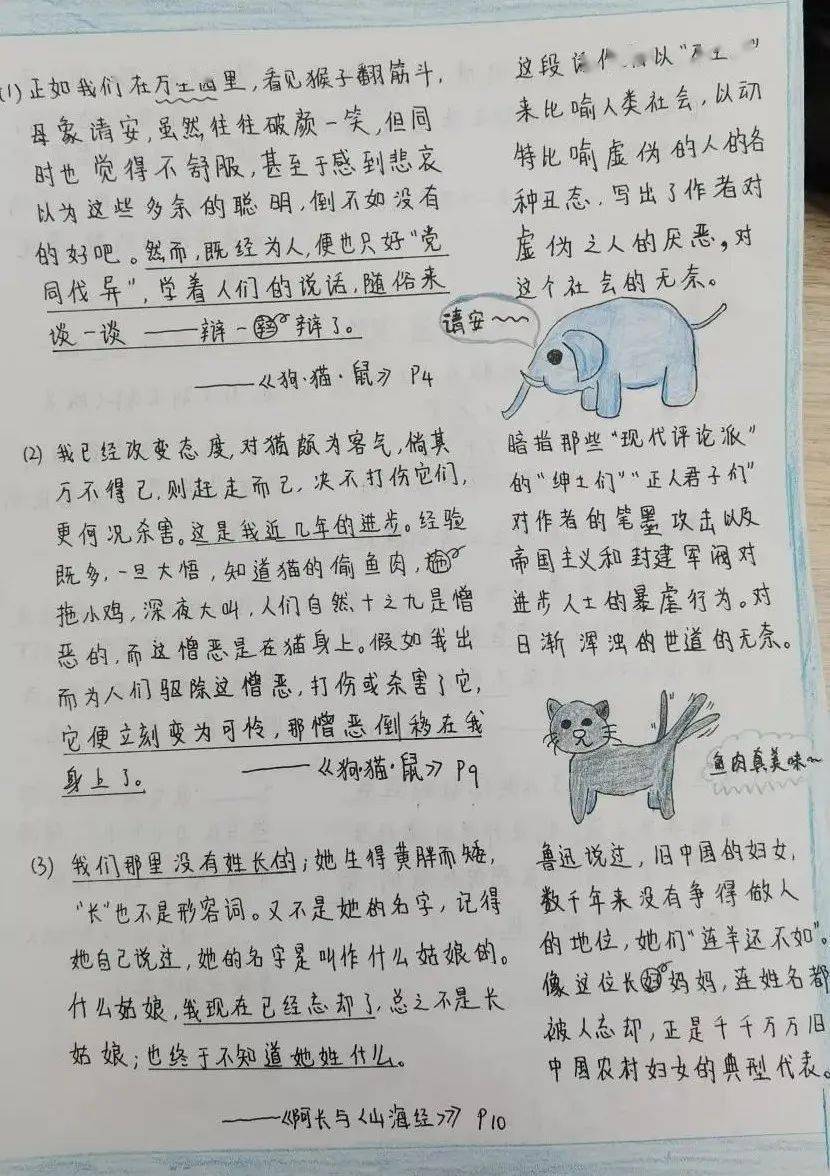 (1) 正如我们在万生园里，看见猴子翻筋斗，
母象请安，虽然往往破颜一笑，但同
时也觉得不舒服，甚至于感到悲哀
以为这些多余的聪明，倒不如没有
的好吧。然而，既经为人，便也只好"党
同伐异"，学着人们的说话，随俗来
谈一谈——辩一辩了。
——《狗·猫·鼠》 P4
这段 以"万生 "
来比喻人类社会，以动
特比喻虚伪的人的各
种丑态．写出了作者对
虚伪之人的厌恶，对
这个社会的无奈。
请安~~
(2) 我已经改变态度，对猫颇为客气，倘其
万不得已，则赶走而已，决不打伤它们，
更何况杀害。这是我近几年的进步。经验
既多，一旦大悟，知道猫的偷鱼肉，
拖小鸡，深夜大叫，人们自然十之九是憎
恶的，而这憎恶是在猫身上。假如我出
而为人们驱除这憎恶，打伤或杀害了它，
它便立刻变为可怜，那憎恶倒移在我
身上了。
——《狗·猫·鼠》 P9
暗指那些"现代评论派"
的"绅士们""正人君子们"
对作者的笔墨攻击以及
帝国主义和封建军阀对
进步人士的暴虐行为。对
日渐浑浊的世道的无奈。
鱼肉真美味~
(3) 我们那里没有姓长的；她生得黄胖而矮，
"长"也不是形容词。又不是她的名字，记得
她自己说过，她的名字是叫作什么姑娘的。
什么姑娘，我现在已经忘却了，总之不是长
姑娘；也终于不知道她姓什么。
——《阿长与〈山海经〉》 P10
鲁迅说过，旧中国的妇女，
数千年来没有争得做人
的地位，她们"连羊还不如"。
像这位长妈妈，连姓名都
被人忘却，正是千千万万旧
中国农村妇女的典型代表。